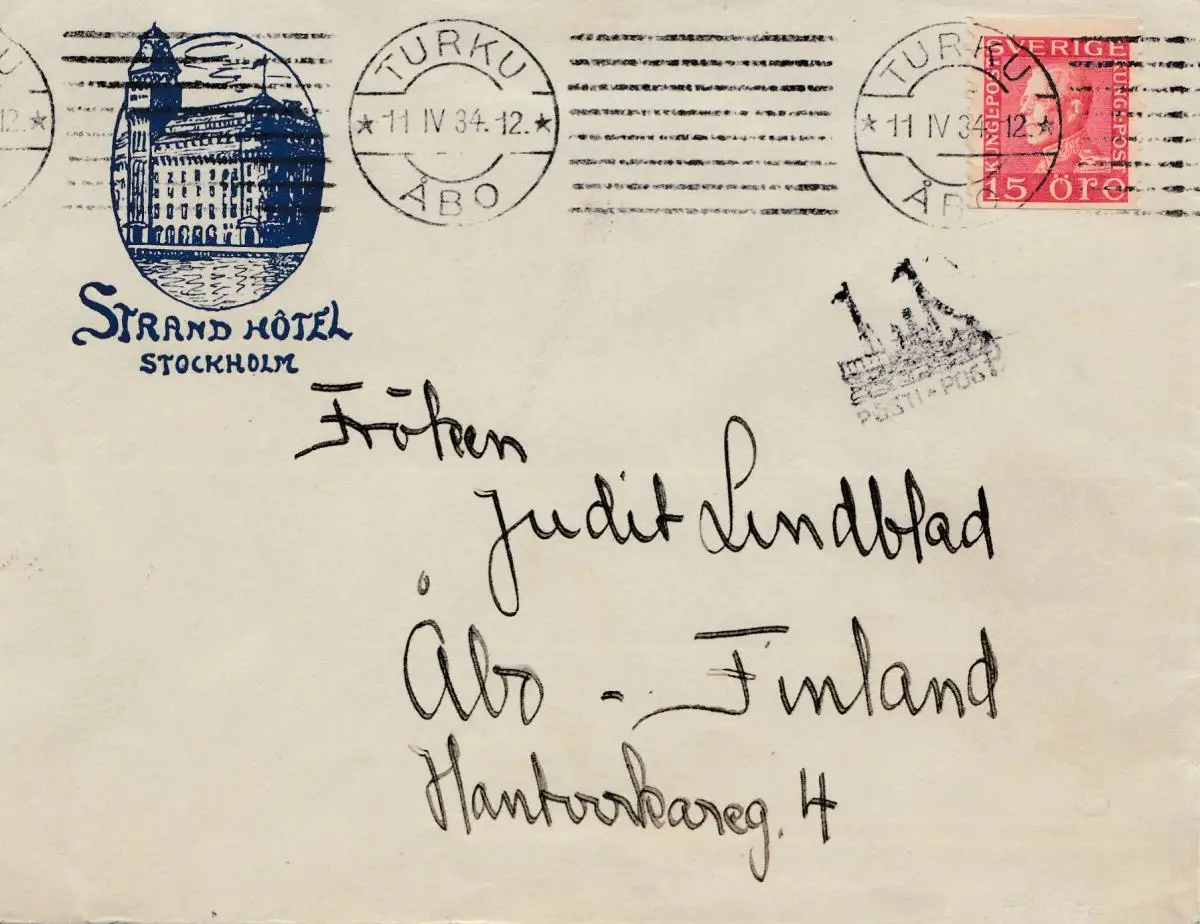 TURKU
★ 11 IV 34.12. ★
ÅBO
TURKU
★ 11 IV 34.12 ★
ÅBO
U
12. ★
SVERIGE
KUNGL·POST
KUNGL·POST
15 ÖRE
STRAND HÔTEL
STOCKHOLM
POSTI-POST
Fröken
Judit Lindblad
Åbo - Finland
Hantvorkareg. 4